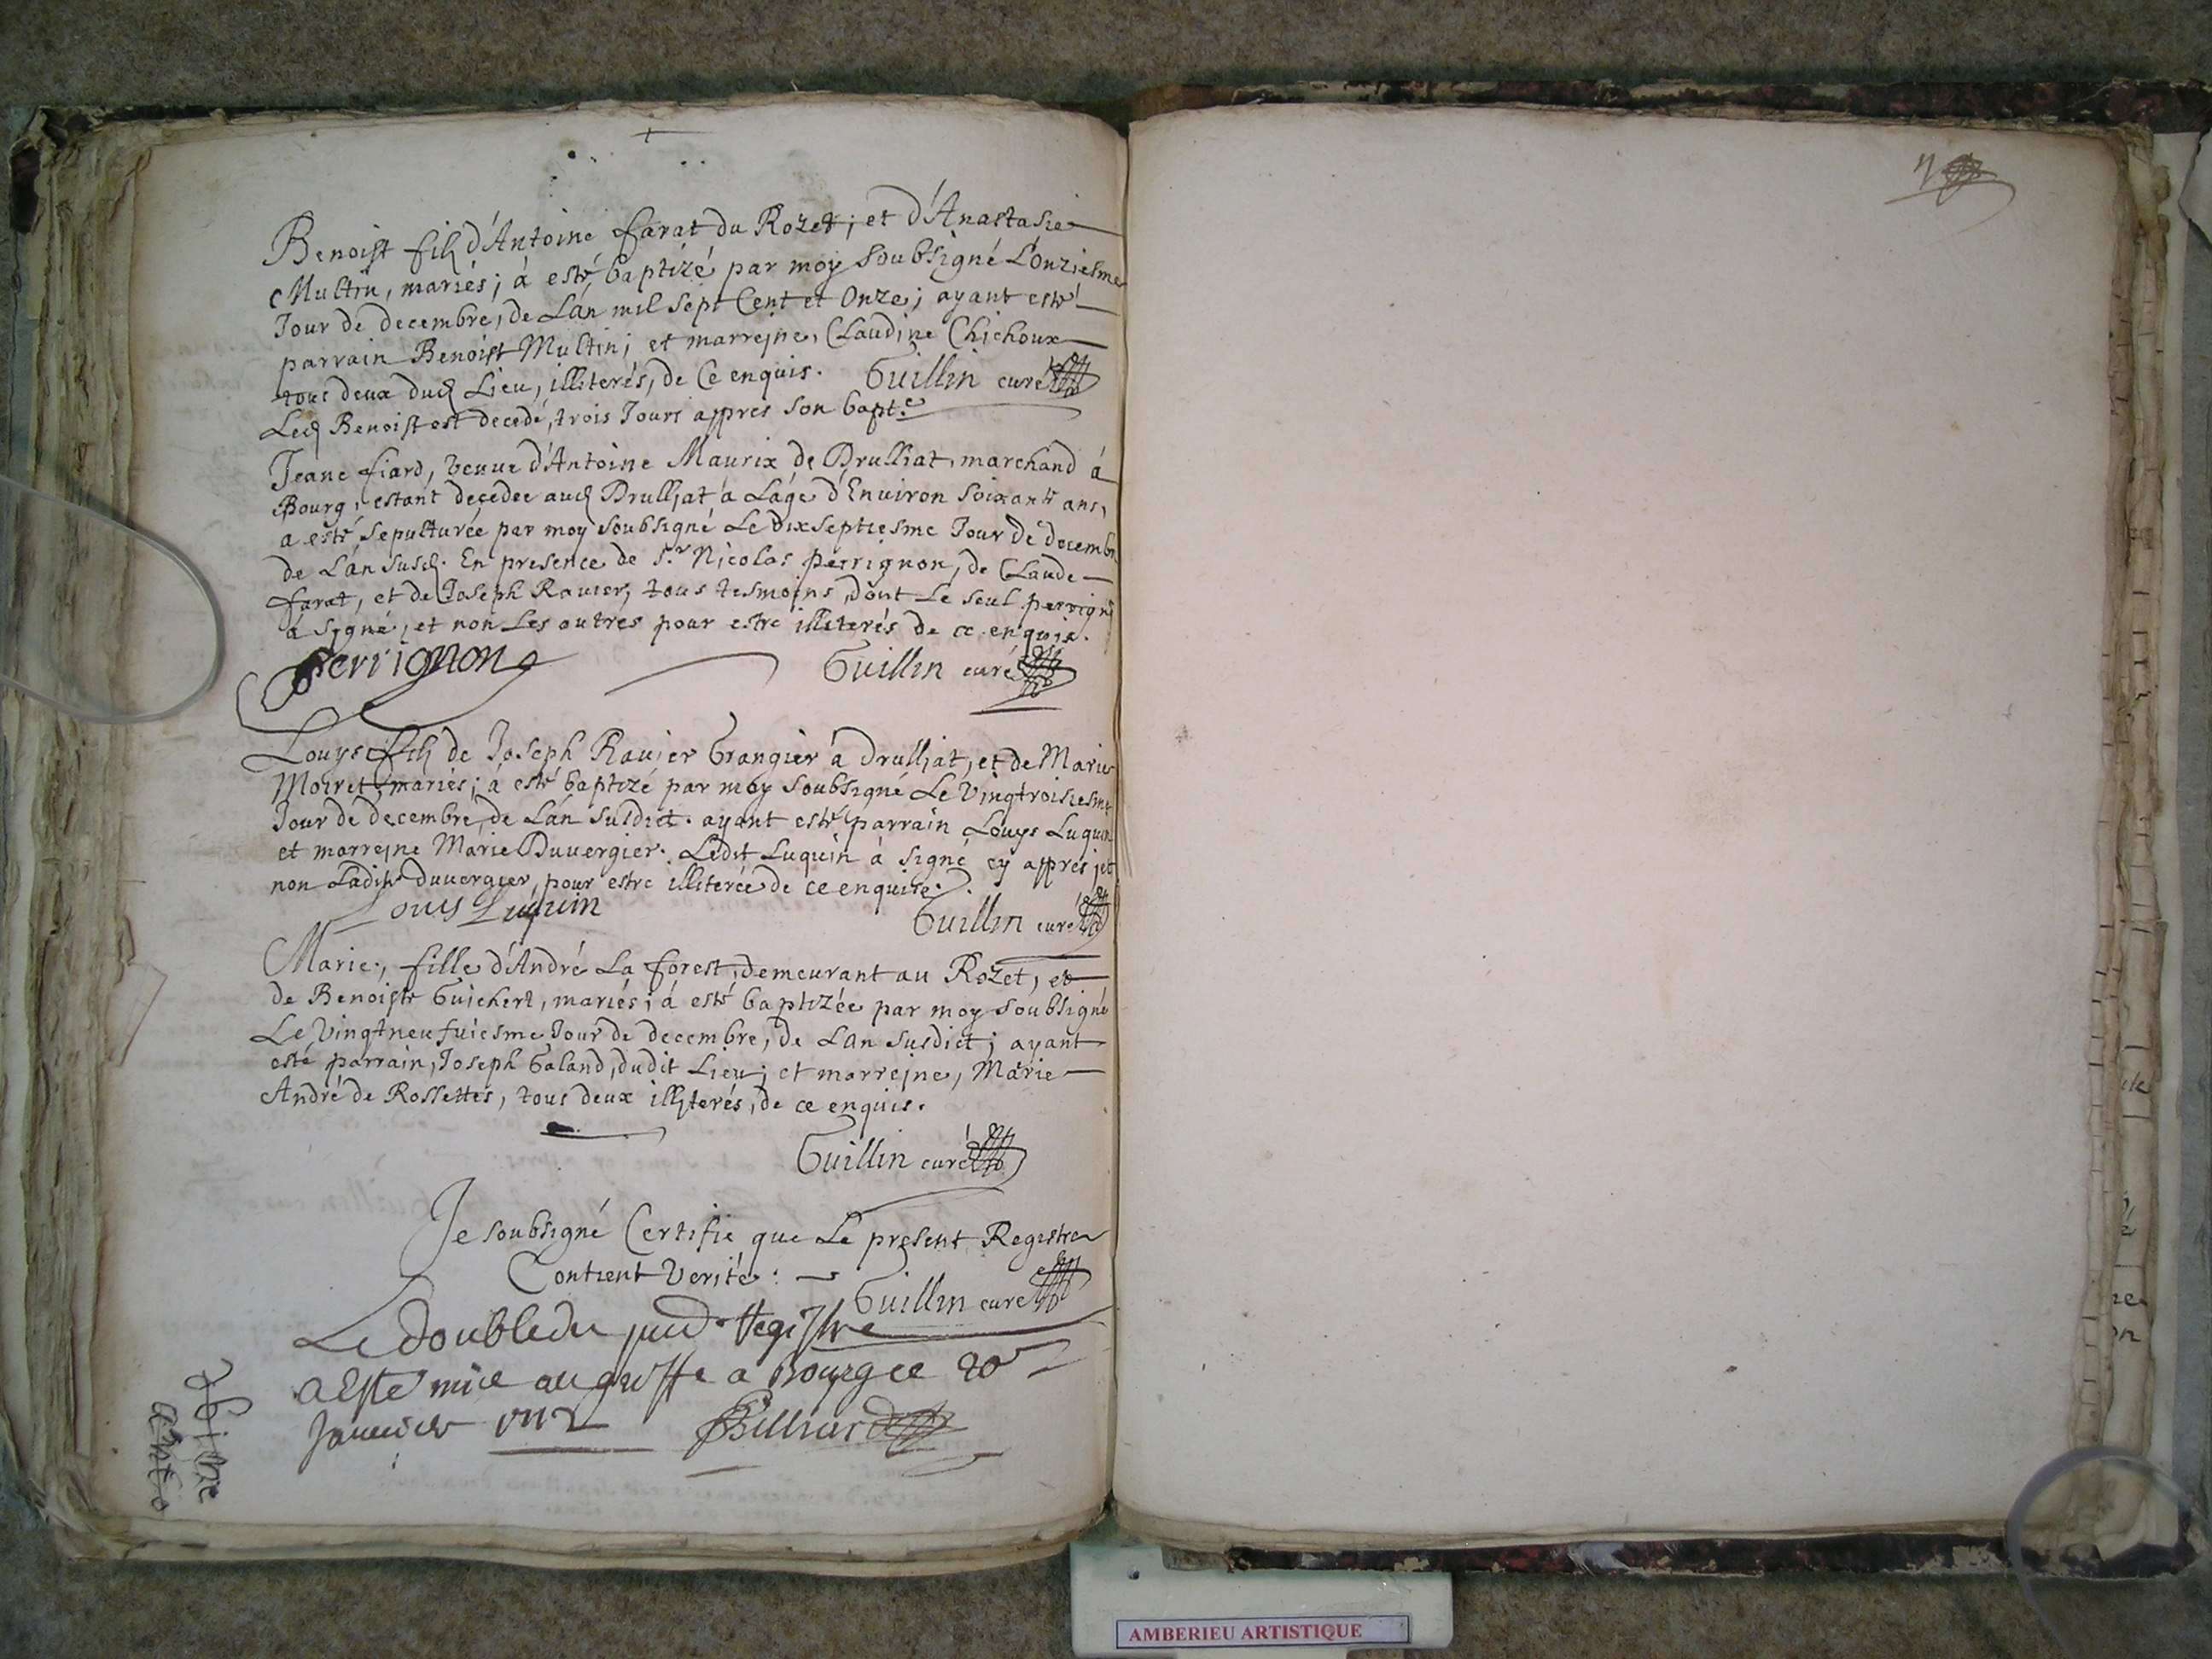 Benoist fils d'Antoine farat du Rozet; et d'Anastasie
Multin, mariés; à esté baptizé par moy soubsigné L'onziesme
Jour de decembre, de L'an mil sept Cent et Onze; ayant esté
parrain Benoist Multin; et marrejne, Claudine Chichoux
tous deux dud Lieu, illiterés, de Ce enquis. Guillin curé
Led Benoist est decedé, trois Jours appres son bapt.e
Jeane fiard, veuve d'Antoine Maurix de Drulliat, marchand à
Bourg, estant decedee aud Drulljat a L'age d'Environ soixante ans,
a esté sepulturée par moy soubsigné Le dixseptiesme Jour de decembr
de L'an susd. En presence de Sr Nicolas perrignon, de Claude
farat, et de Joseph Ravier, tous tesmoins, dont Le seul perrign
à sygné, et non Les autres pour estre illiterés de ce enquis.
Perrignon Guillin curé
Louys fils de Joseph Ravier Grangier a drulljat, et de Marie
Moiret mariés; à esté baptizé par moy soubsigné Le Vingtroisiesme
Jour de decembre, de L'an susdict. ayant esté parrain Louys Luquin
et marrejne Marie Duvergier. Ledit Luquin à signé cy appres; et
non Ladite duvergier, pour estre illiterée de ce enquise.
Louis Luquin Guillin curé
Marie, fille d'André La forest, demeurant au Rozet, et
de Benoiste Guichert, mariés; à esté baptizée par moy soubsigné
Le Vingtneufuiesme Jour de decembre, de L'an susdict; ayant
esté parrain, Joseph Galand, dudit Lieu; et marrejne, Marie
André de Rossettes, tous deux illyterés, de ce enquis.
Guillin curé
Je soubsigné Certifie que Le present Registre
Contient Verité: Guillin curé
Le double du pnt Registre
a Esté mis au greffe a Bourg ce 20
Janvier 1712 Billiard
AMBERIEU ARTISTIQUE